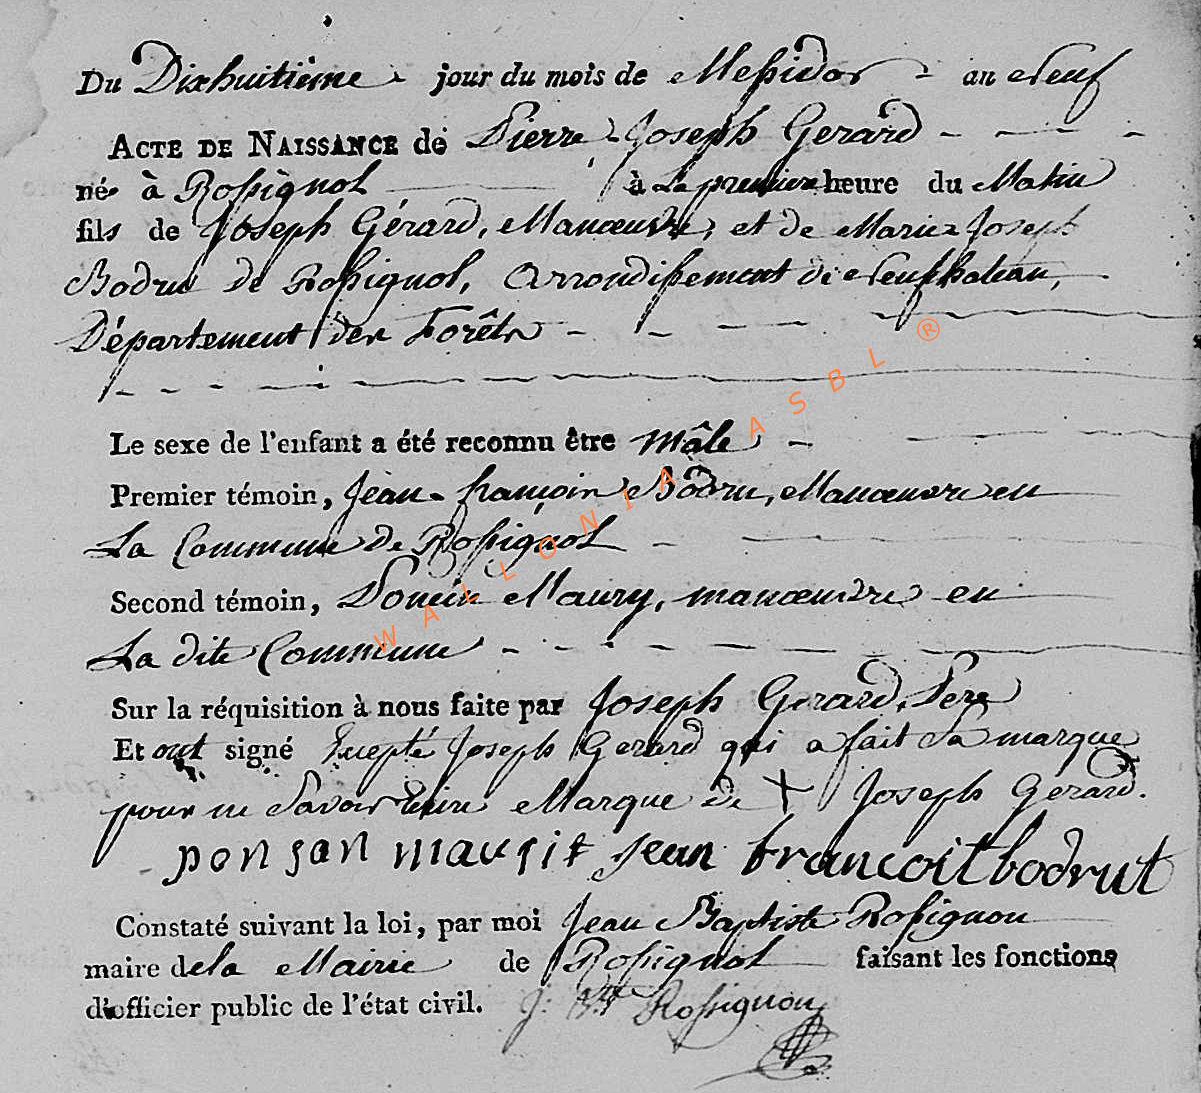 Du Dixhuitième jour du mois de Messidor an neuf
ACTE DE NAISSANCE de Pierre-Joseph Gerard
né à Rossignol à La premiere heure du Matin
fils de Joseph Gérard, Manœuvre, et de Marie-Joseph
Bodru de Rossignol, Arrondissement de Neufchateau,
Département des Forêts
Le sexe de l'enfant a été reconnu être mâle
Premier témoin, Jean-françois Bodru, Manœuvre en
La Commune de Rossignol
Second témoin, Poncin Maury, manœuvre en
La dite Commune
Sur la réquisition à nous faite par Joseph Gerard, Pere
Et ont signé Excepté Joseph Gerard qui a fait Sa marque
pour ne Savoir Ecrire Marque de X Joseph Gerard.
ponsan maurit jean francoit bodrut
Constaté suivant la loi, par moi Jean Baptiste Rossignon
maire de la Mairie de Rossignol faisant les fonctions
d'officier public de l'état civil. J: Bte Rossignon
WALLONIA ASBL ®